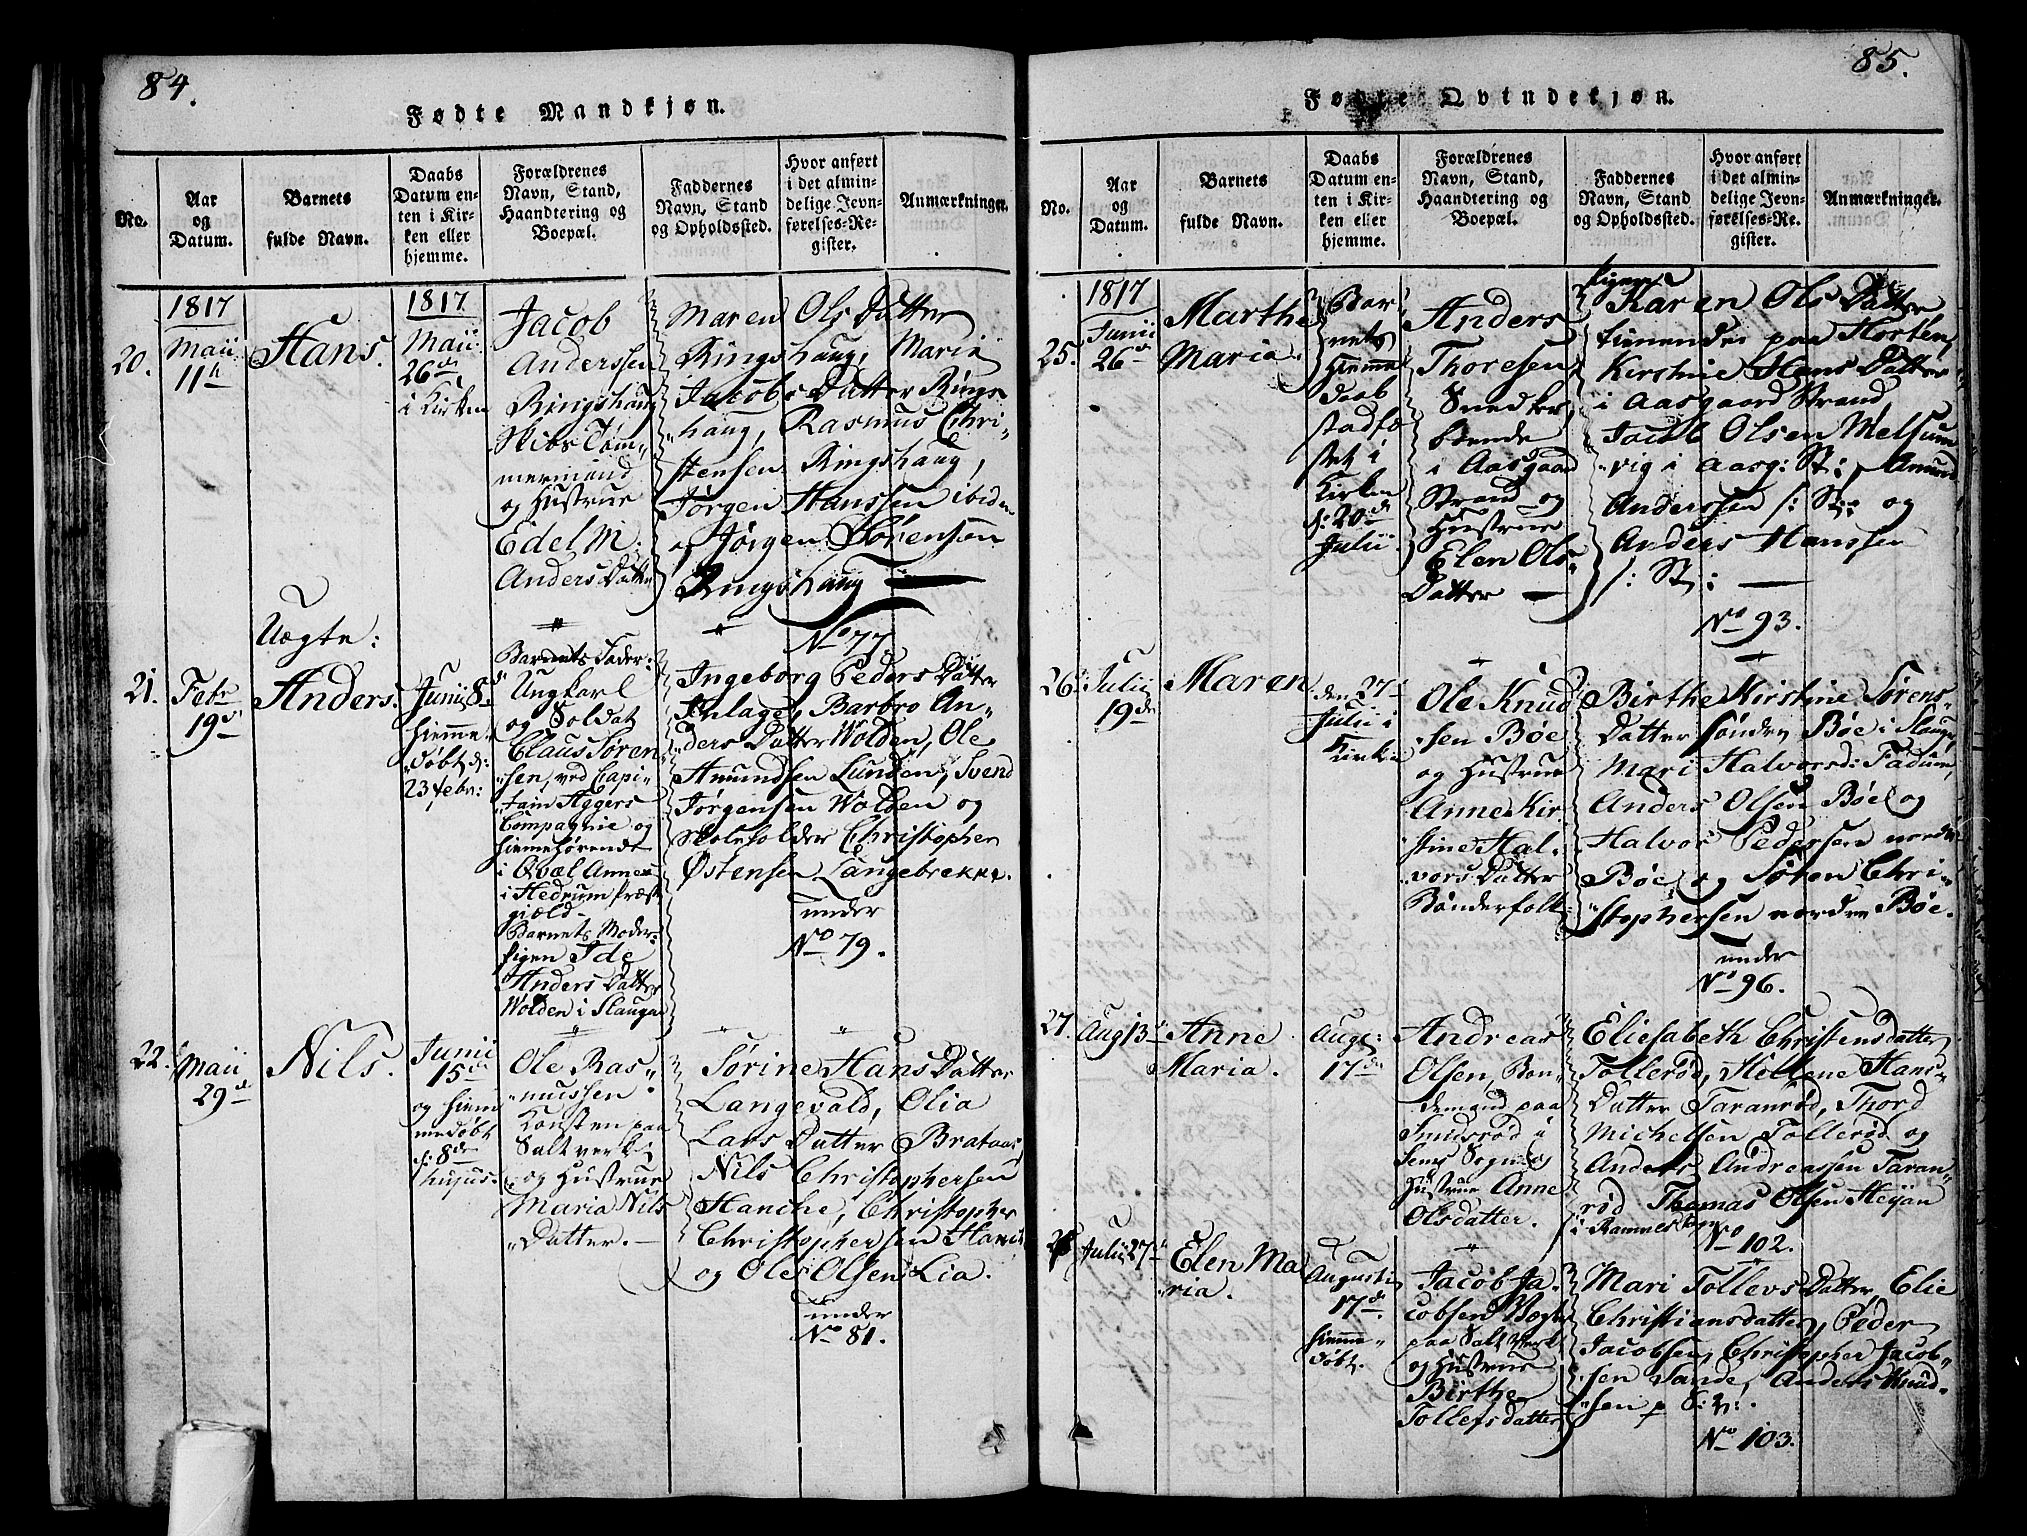 84.
Fødte Mandkjøn.
No.
Aar
og
Datum.
Barnets
fulde Navn.
Daabs
Datum en-
ten i Kir-
ken eller
hjemme.
Forældrenes
Navn, Stand,
Haandtering og
Boepæl.
Faddernes
Navn, Stand
og Opholdssted.
Hvor anført
i det almin-
delige Jevn-
førelses-Re-
gister.
Anmærkninger.
20.
1817
Maii
11te
Hans.
1817
Maii
26de
i Kirken
Jacob
Anderssen
Ringshaug
Skibs Tøm-
mermand
og Hustrue
Edel M:
Anders Datter
Maren Ols Datter
Ringshaug, Marie
Jacobs Datter Rings
haug, Rasmus Chri-
stensen Ringshaug,
Jørgen Hanssen ibidem
og Jørgen Sørensen
Ringshaug
No 77
21.
Febr
19de
Uægte:
Anders.
Junii 8de
hiemme-
døbt d:
23 febr:
Barnets Fader:
Ungkarl
og Soldat
Claus Søren
sen, ved Capi-
tain Aggers
Compagnie og
hiemehørende
i Qvæl Annex
i Hedrum Præst
giæld-
Barnets Moder:
Pigen Ide
Anders Datter
Wolden i Slaugn
Ingeborg Peders Datter
Indlaget, Barbro An-
ders Datter Wolden, Ole
Amundsen Lunden, Svend
Jørgensen Wolden og
Skoleholder Christopher
Østensen Langebrekke.
under
No 79.
22.
Maii
29de
Nils.
Junii
15de
og hiem
medøbt
d: 8de
hujus.
Ole Ras-
mussen
Konsten paa
Saltverket
og Hustrue
Maria Nils
Datter.
Sørine Hans Datter
Langevald, Olia
Lars Datter Brataas,
Nils Christophersen
Hanche, Christopher
Christophersen Hanche
og Ole Olsen Lia.
under
No 81.
85.
Fødte Qvindekjøn.
No.
Aar
og
Datum.
Barnets
fulde Navn.
Daabs
Datum en-
ten i Kir-
ken eller
hjemme.
Forældrenes
Navn, Stand,
Haandtering og
Boepæl.
Faddernes
Navn, Stand
og Opholdssted.
Hvor anført
i det almin-
delige Jevn-
førelses-Re-
gister.
Anmærkninger.
25.
1817
Junii
26de
Marthe
Maria.
Bar
nets
Hiemme
Daab
stadfæ
stet i
Kirken
d: 20de
Julii.
Anders
Thoresen
Snedker
boende
i Aasgaard
Strand og
Hustrue
Elen Ols-
Datter
Pigen
Karen Ols Datter
tienende paa Horten,
Kirstine Hans Datter
i Aasgaard Strand,
Jacob Olsen Melsum
vig i Aasg: St:, Amund
Anderssen /: St: og
Anders Hanssen
/: St:
No 93.
26.
Julii
19de
Maren
den 27de
Julii i
Kirken
Ole Knud
sen Bøe
og Hustrue
Anne Kir
stine Hal-
vors Datter
Bønderfolk
Birthe Kirstine Sørens-
Datter søndre Bøe i Slaugn,
Mari Halvorsd: Fadum,
Anders Olsen Bøe og
Halvor Pedersen nordre
Bøe og Søren Chri-
stophersen nordre Bøe.
under
No 96.
27.
Aug 13de
Anne
Maria.
Aug:
17de
Andreas
Olsen, Bon-
demand paa
Smidsrød i
Sems Sogn og
Hustrue Anne
Olsdatter.
Eliesabeth Christensdatter
Tollerød, Hellene Hans-
Datter Taranrød, Thord
Michelsen Tollerød og
Anders Andreassen Taran-
rød Thomas Olsen Heian
i Ramnes
No 102.
28.
Julii 27de
Elen Ma
ria.
Augusti
17de
hiemme-
døbt.
Jacob Ja-
cobsen Vogter
paa Salt Værket
og Hustrue
Birthe
Tollefsdatter
Mari Tollevs Datter, Elie
Christiansdatter, Peder
Jacobsen, Christopher Jacob-
sen Sande, Anders Knud-
sen p S: V:.
No 103.